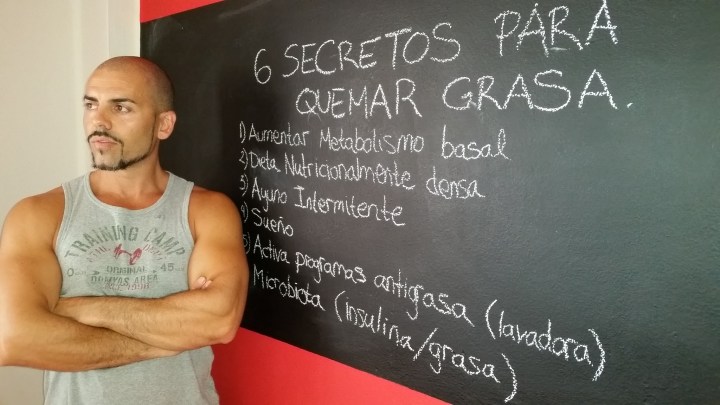 6 SECRETOS PARA
QUEMAR GRASA.
1) Aumentar Metabolismo basal
2) Dieta Nutricionalmente densa
3) Ayuno Intermitente
4) Sueño
5) Activa programas antigrasa (lavadora)
Microbiota (insulina/grasa)
TRAINING CAMP
ORIGINAL
45